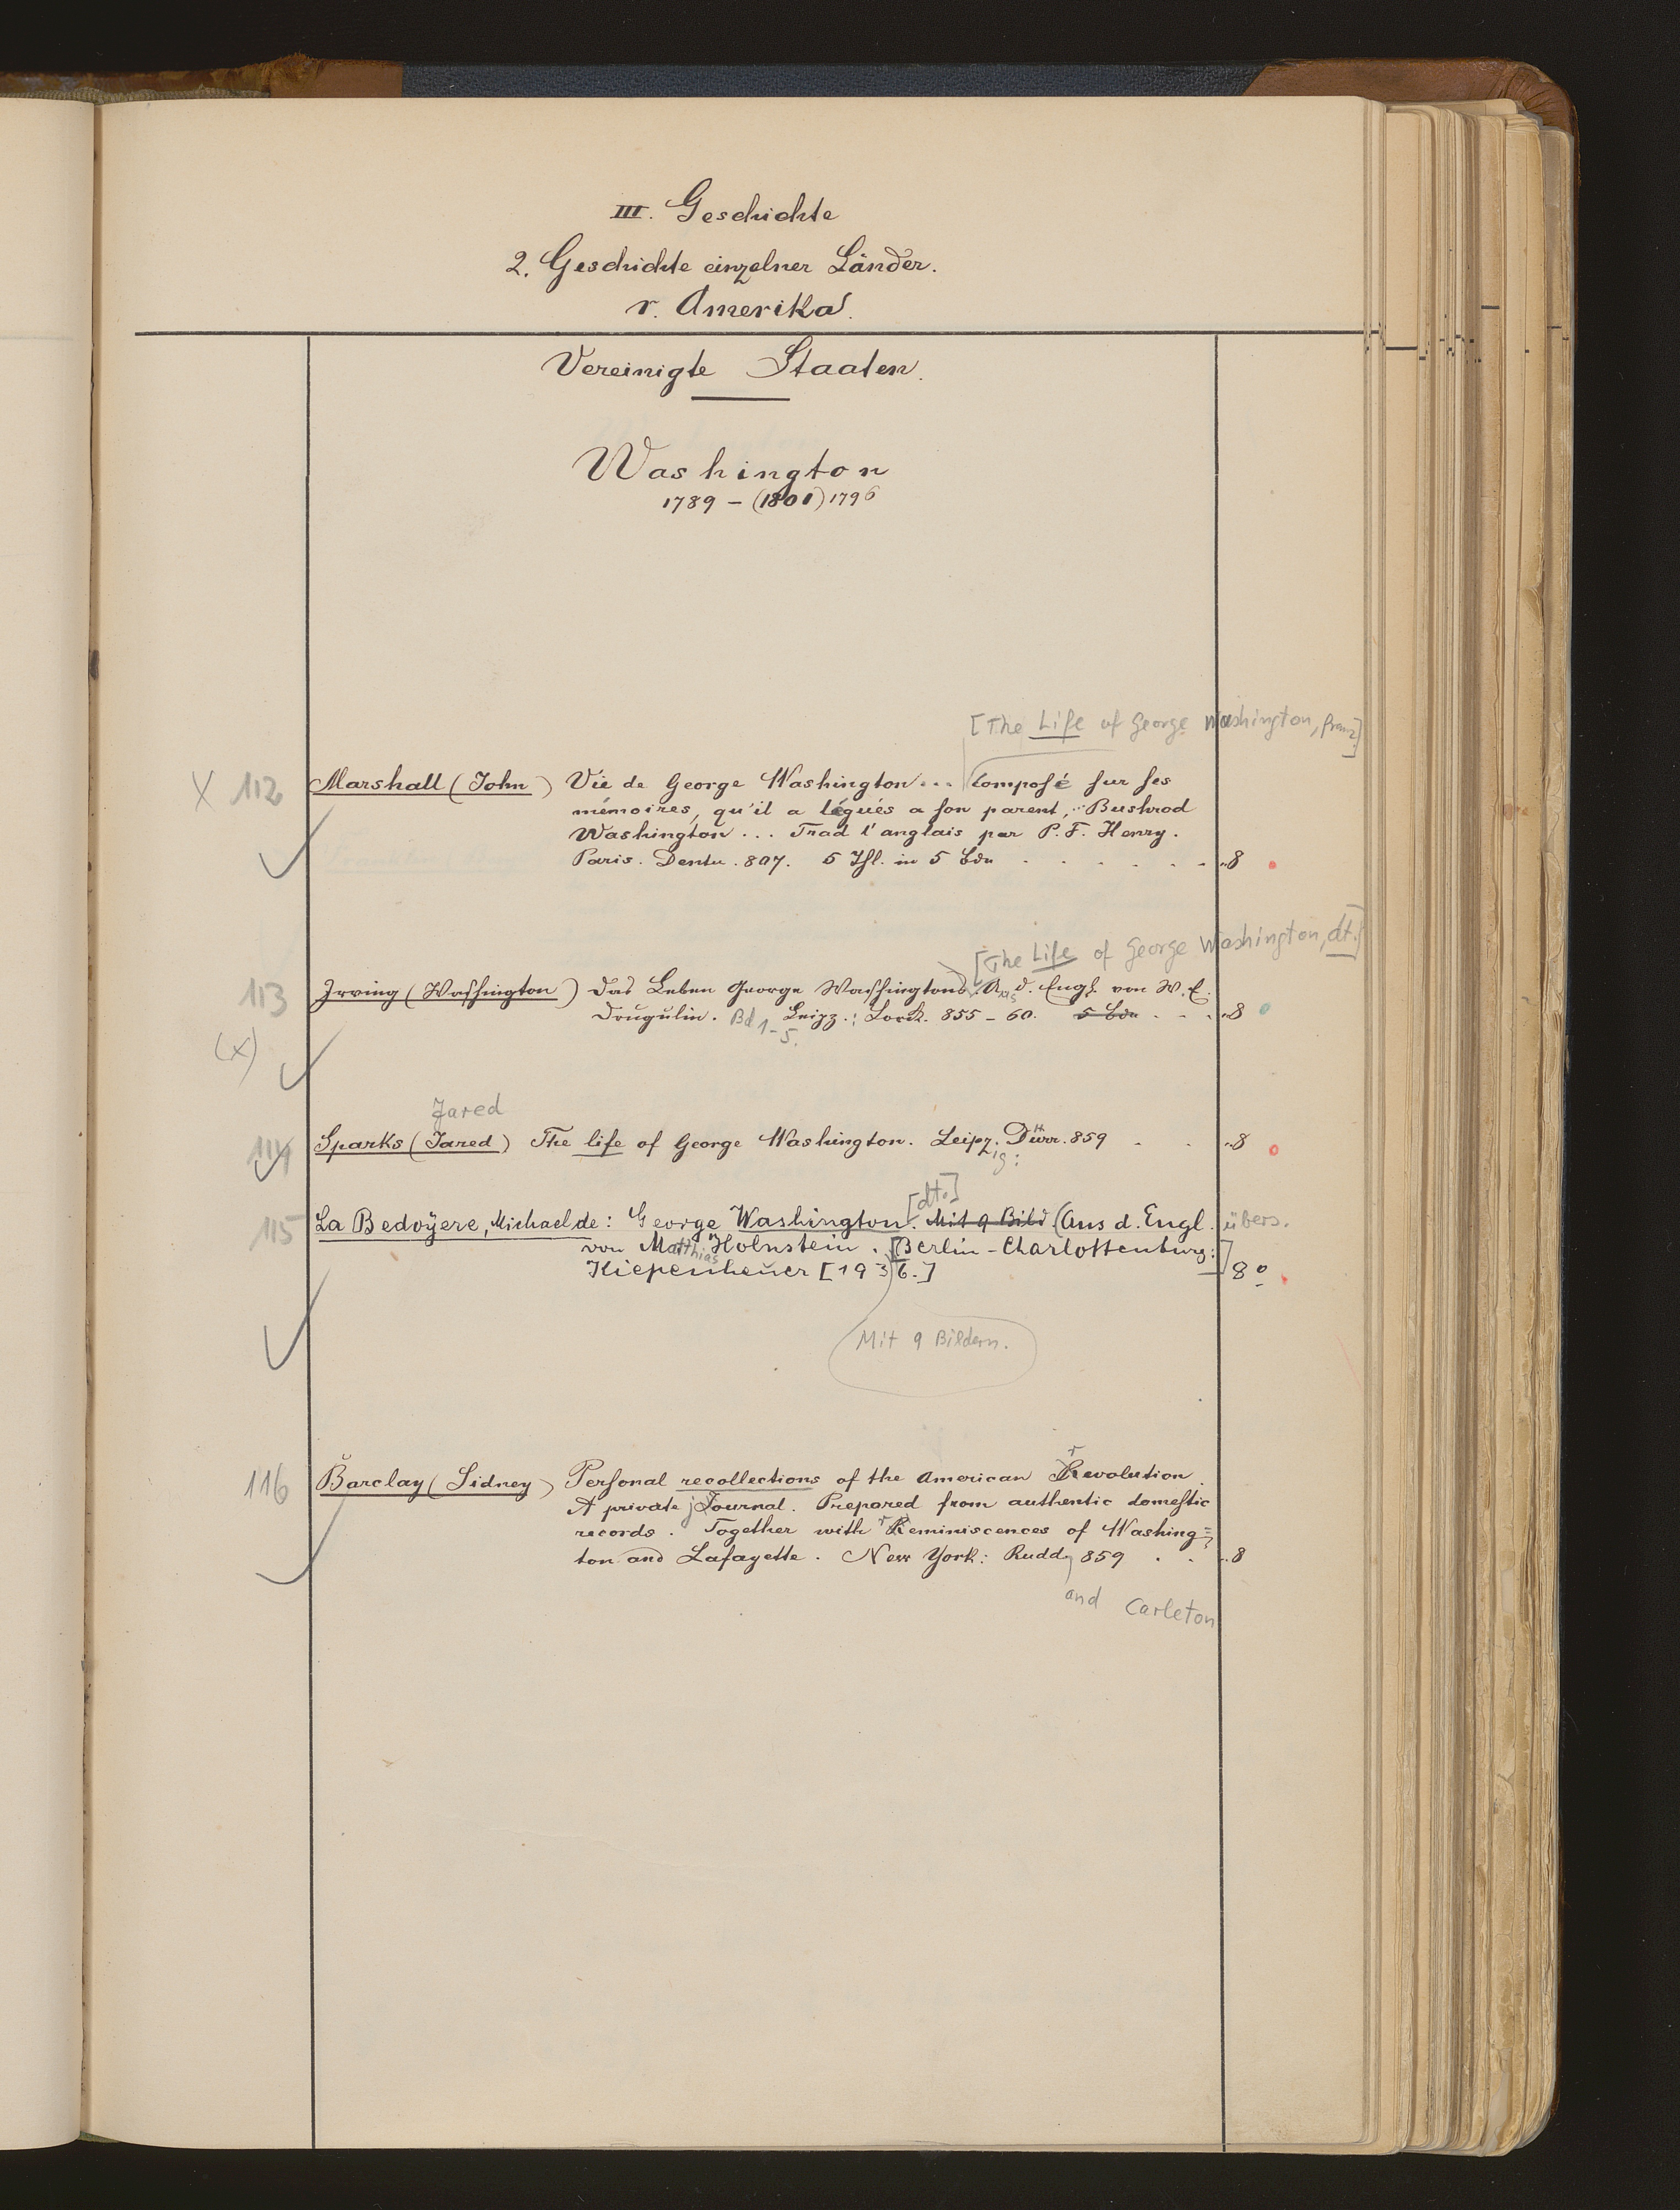 III. Geschichte
2. Geschichte einzelner Länder.
r. Amerika.
Vereinigte Staaten.
Washington
1789 – (1801) 1796
[The Life of George Washington, franz.]
X 112 Marshall (John) Vie de George Washington... composé sur ses
mémoires, qu'il a légués a son parent, Bushrod
Washington ... Trad l'anglais par P. F. Henry.
Paris. Dentu. 807. 5 Thl. in 5 Bdn . . . . . . 8
[The Life of George Washington, dt.]
113 Irving (Washington) Das Leben George Washingtons. Aus d. Engl. von W. E.
Drugulin. Bd 1-5. Leipz.: Lorck. 855 – 60. 5 Bdn . . . 8
(X)
Jared
114 Sparks (Jared) The life of George Washington. Leipzig: Dürr. 859 . . 8
[dt.]
115 La Bedoÿere, Michael de: George Washington. Mit 9 Bild (Aus d. Engl. übers.
von Matthias Holnstein. [Berlin-Charlottenburg:]
Kiepenheuer [1936.] 8º
Mit 9 Bildern.
116 Barclay (Sidney) Personal recollections of the American Revolution.
A private Journal. Prepared from authentic domestic
records. Together with Reminiscences of Washing=
ton and Lafayette. New York: Rudd 859 . . 8
and Carleton